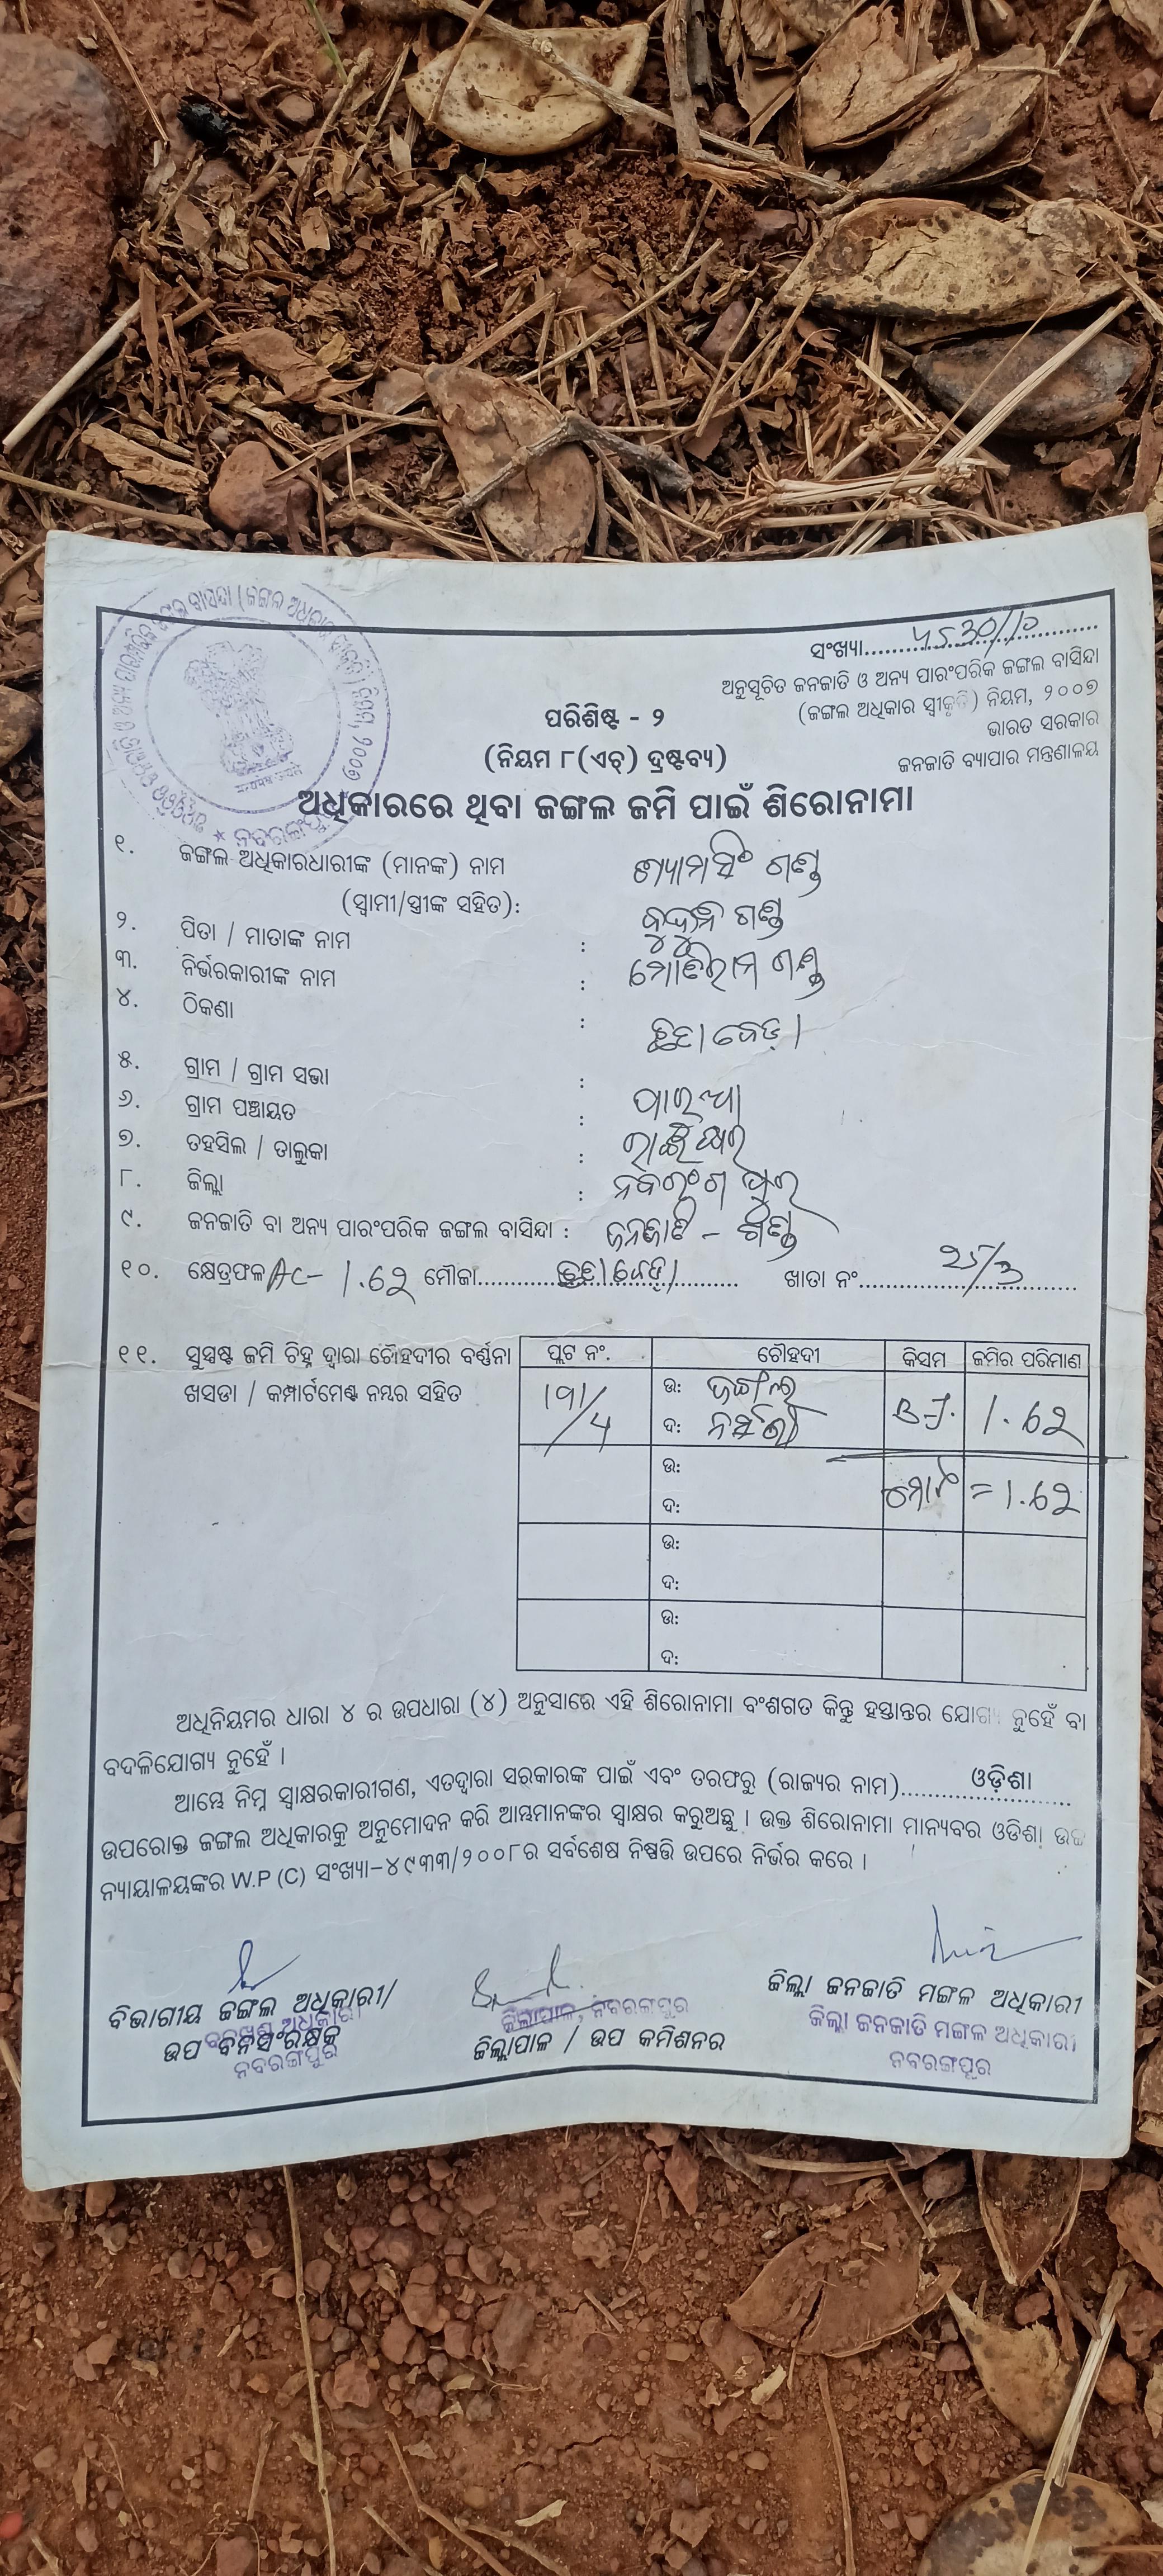 ସଂଖ୍ୟା.......4530/10
ଅନୁସୂଚିତ ଜନଜାତି ଓ ଅନ୍ୟ ପାରଂପରିକ ଜଙ୍ଗଲ ବାସିନ୍ଦା
(ଜଙ୍ଗଲ ଅଧିକାର ସ୍ୱୀକୃତି) ନିୟମ, ୨୦୦୭
ଭାରତ ସରକାର
ଜନଜାତି ବ୍ୟାପାର ମନ୍ତ୍ରଣାଳୟ
ପରିଶିଷ୍ଟ - ୨
(ନିୟମ ୮(ଏଚ୍) ଦ୍ରଷ୍ଟବ୍ୟ)
ଅଧିକାରରେ ଥିବା ଜଙ୍ଗଲ ଜମି ପାଇଁ ଶିରୋନାମା
ନବରଙ୍ଗପୁର
୧. ଜଙ୍ଗଲ ଅଧିକାରଧାରୀଙ୍କ (ମାନଙ୍କ) ନାମ ଶ୍ୟାମସିଂ ଗଣ୍ଡ
(ସ୍ୱାମୀ/ସ୍ତ୍ରୀଙ୍କ ସହିତ):
୨. ପିତା / ମାତାଙ୍କ ନାମ : ବୁଦୁନ ଗଣ୍ଡ
୩. ନିର୍ଭରକାରୀଙ୍କ ନାମ : ମୋତିରାମ ଗଣ୍ଡ
୪. ଠିକଣା :
୫. ଗ୍ରାମ / ଗ୍ରାମ ସଭା :
୬. ଗ୍ରାମ ପଞ୍ଚାୟତ :
୭. ତହସିଲ / ତାଲୁକା : ରାଇଘର
୮. ଜିଲ୍ଲା : ନବରଂଗପୁର
୯. ଜନଜାତି ବା ଅନ୍ୟ ପାରଂପରିକ ଜଙ୍ଗଲ ବାସିନ୍ଦା : ଜନଜାତି - ଗଣ୍ଡ
୧୦. କ୍ଷେତ୍ରଫଳ Ac- 1.62 ମୌଜା....... ଖାତା ନଂ.......25/3
୧୧. ସୁସ୍ପଷ୍ଟ ଜମି ଚିହ୍ନ ଦ୍ୱାରା ଚୌହଦୀର ବର୍ଣ୍ଣନା
ଖସଡା / କମ୍ପାର୍ଟମେଣ୍ଟ ନମ୍ବର ସହିତ
ପ୍ଲଟ ନଂ. ଚୌହଦୀ କିସମ ଜମିର ପରିମାଣ
191/4 ଉ: ଜଙ୍ଗଲ B.J. 1.62
ଦ: ନର୍ସରୀ
ଉ: ମୋଟ = 1.62
ଦ:
ଉ:
ଦ:
ଉ:
ଦ:
ଅଧିନିୟମର ଧାରା ୪ ର ଉପଧାରା (୪) ଅନୁସାରେ ଏହି ଶିରୋନାମା ବଂଶଗତ କିନ୍ତୁ ହସ୍ତାନ୍ତର ଯୋଗ୍ୟ ନୁହେଁ ବା
ବଦଳିଯୋଗ୍ୟ ନୁହେଁ ।
ଆମ୍ଭେ ନିମ୍ନ ସ୍ୱାକ୍ଷରକାରୀଗଣ, ଏତଦ୍ୱାରା ସରକାରଙ୍କ ପାଇଁ ଏବଂ ତରଫରୁ (ରାଜ୍ୟର ନାମ).......ଓଡ଼ିଶା
ଉପରୋକ୍ତ ଜଙ୍ଗଲ ଅଧିକାରକୁ ଅନୁମୋଦନ କରି ଆମ୍ଭମାନଙ୍କର ସ୍ୱାକ୍ଷର କରୁଅଛୁ । ଉକ୍ତ ଶିରୋନାମା ମାନ୍ୟବର ଓଡିଶା ଉଚ୍ଚ
ନ୍ୟାୟାଳୟଙ୍କର W.P (C) ସଂଖ୍ୟା-୪୯୩୩/୨୦୦୮ର ସର୍ବଶେଷ ନିଷ୍ପତ୍ତି ଉପରେ ନିର୍ଭର କରେ ।
ବିଭାଗୀୟ ଜଙ୍ଗଲ ଅଧିକାରୀ/
ଉପ ବନସଂରକ୍ଷକ
ନବରଙ୍ଗପୁର
ଜିଲାପାଳ, ନବରଙ୍ଗପୁର
ଜିଲ୍ଲାପାଳ / ଉପ କମିଶନର
ଜିଲ୍ଲା ଜନଜାତି ମଙ୍ଗଳ ଅଧିକାରୀ
ଜିଲ୍ଲା ଜନଜାତି ମଙ୍ଗଳ ଅଧିକାରୀ
ନବରଙ୍ଗପୁର